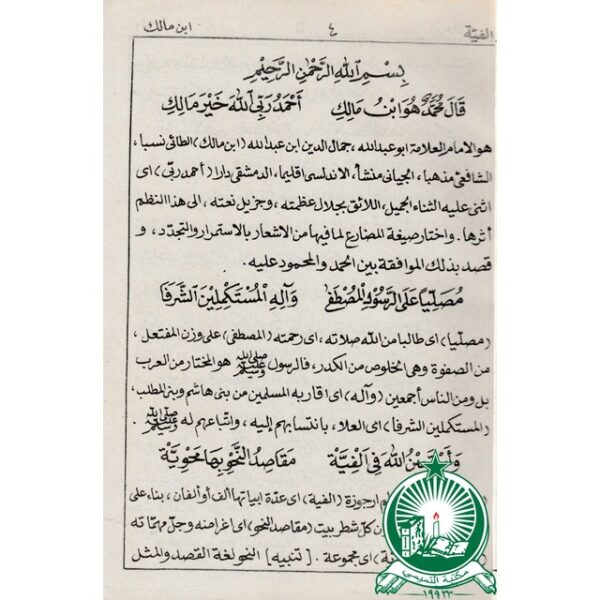 الفية ٤ ابن مالك
بِسْمِ اللهِ الرَّحْمٰنِ الرَّحِيْمِ
قَالَ مُحَمَّدٌ هُوَ ابْنُ مَالِكِ أَحْمَدُ رَبِّي اللهَ خَيْرَ مَالِكِ
هو الامام العلامة ابو عبدالله، جمال الدين ابن عبدالله (ابن مالك) الطائى نسبا،
الشافعى مذهبا، الجيانى منشأ، الاندلسى اقليما، الدمشقى دارا (أحمد ربى) اى
اثنى عليه الثناء الجميل، اللائق بجلال عظمته، وجزيل نعته، الى هذا النظم
أثرها. واختار صيغة المضارع لما فيها من الاشعار بالاستمرار والتجدّد، و
قصد بذلك الموافقة بين الحمد والمحمود عليه.
مُصَلِّيًا عَلَى الرَّسُوْلِ الْمُصْطَفَى وَآلِهِ الْمُسْتَكْمِلِيْنَ الشَّرَفَا
(مصليا) اى طالبا من الله صلاته، اى رحمته (المصطفى) على وزن المفتعل،
من الصفوة وهى الخلوص من الكدر، فالرسول صلى الله عليه وسلم هو المختار من العرب
بل ومن الناس أجمعين (وآله) اى اقاربه المسلمين من بنى هاشم وبنى المطلب،
(المستكملين الشرفا) اى العلا، بانتسابهم إليه، واتّباعهم له صلى الله عليه وسلم.
وَأَسْتَعِيْنُ اللهَ فِى أَلْفِيَّةْ مَقَاصِدُ النَّحْوِ بِهَا مَحْوِيَّةْ
ارجوزة (الفية) اى عدّة ابياتها ألف أو ألفان، بناء على
كل شطر بيت (مقاصد النحو) اى اغراضه وجلّ مهمّاته
اى مجموعة. [تنبيه] النحو لغة القصد والمثل
مكتبة النميسي
١٩٩٢٣